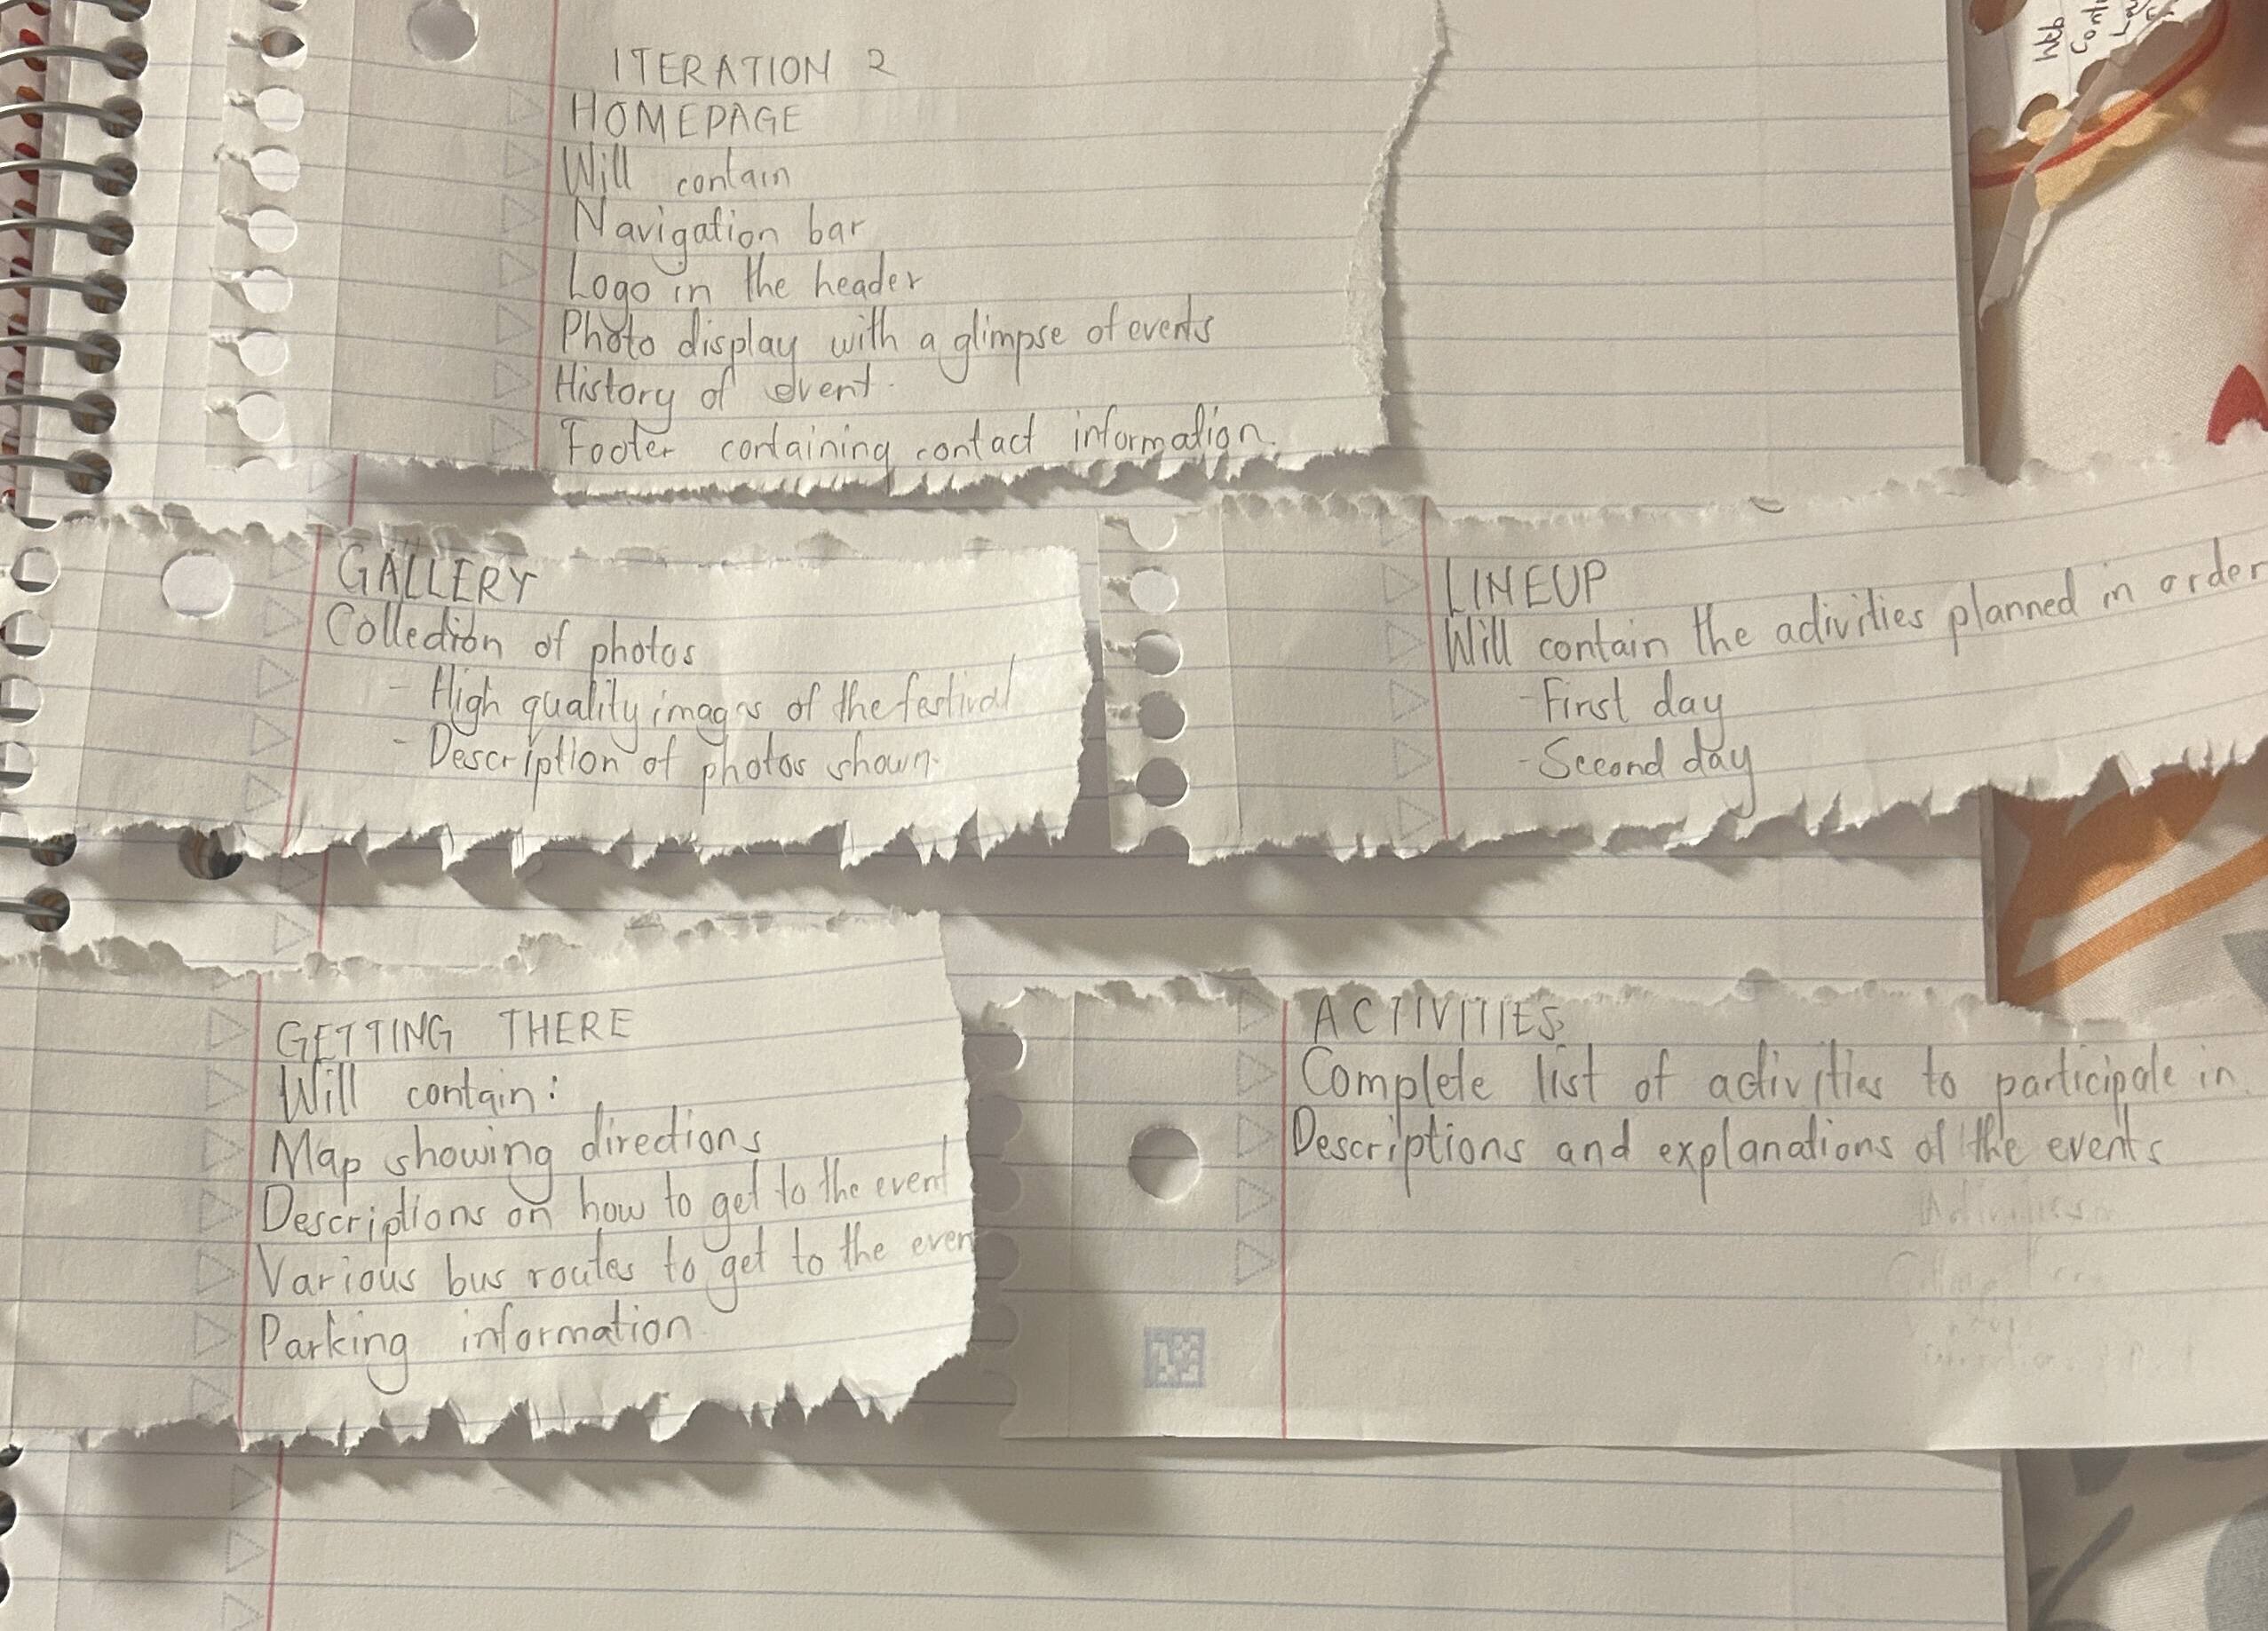 ITERATION 2
HOMEPAGE
Will contain
Navigation bar
Logo in the header
Photo display with a glimpse of events
History of event.
Footer containing contact information.
GALLERY
Collection of photos
- High quality images of the festival
- Description of photos shown.
LINEUP
Will contain the activities planned in order
- First day
- Second day
GETTING THERE
Will contain:
Map showing directions
Descriptions on how to get to the event
Various bus routes to get to the even
Parking information
ACTIVITIES
Complete list of activities to participate in
Descriptions and explanations of the events